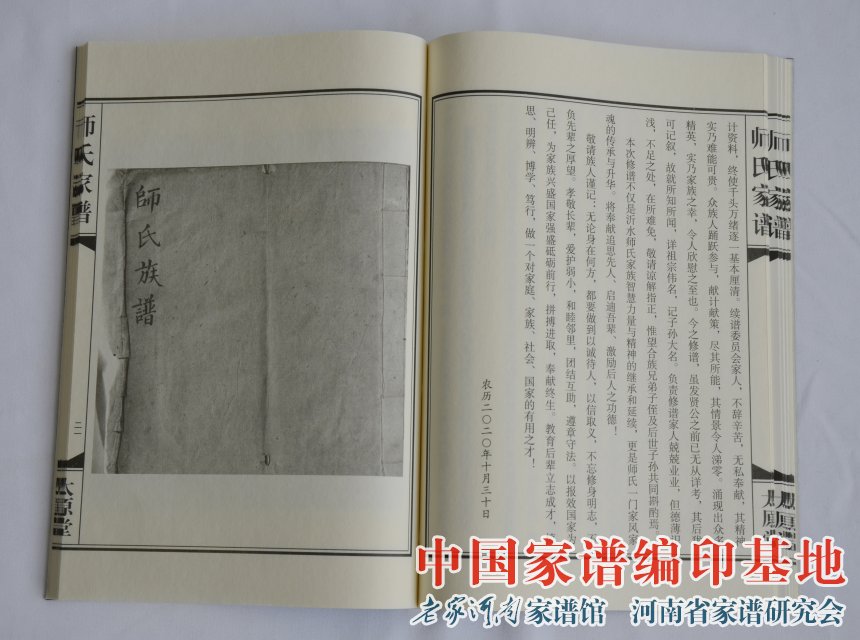 师氏家谱
计资料，终使千头万绪逐一基本厘清。续谱委员会家人，不辞辛苦，无私奉献，其精神
实乃难能可贵。众族人踊跃参与，献计献策，尽其所能，其情景令人涕零。涌现出众多
精英，实乃家族之幸，令人欣慰之至也。今之修谱，虽发贤公之前已无从详考，其后
可记叙，故就所知所闻，详祖宗伟名，记子孙大名。负责修谱家人兢兢业业，但德薄识
浅，不足之处，在所难免，敬请谅解指正，惟望合族兄弟子侄及后世子孙共同斟酌焉。
本次修谱不仅是沂水师氏家族智慧力量与精神的继承和延续，更是师氏一门家风家
魂的传承与升华。将奉献追思先人、启迪吾辈、激励后人之功德！
敬请族人谨记：无论身在何方，都要做到以诚待人，以信取义，不忘修身明志，不
负先辈之厚望。孝敬长辈，爱护弱小，和睦邻里，团结互助，遵章守法。以报效国家为
己任，为家族兴盛国家强盛砥砺前行，拼搏进取，奉献终生。教育后辈立志成才，
思、明辨、博学、笃行，做一个对家庭、家族、社会、国家的有用之才！
农历二〇二〇年十月三十日
太原堂
師氏族譜
师氏家谱
二一
太原堂
中国家谱编印基地
老家河南家谱馆 河南省家谱研究会